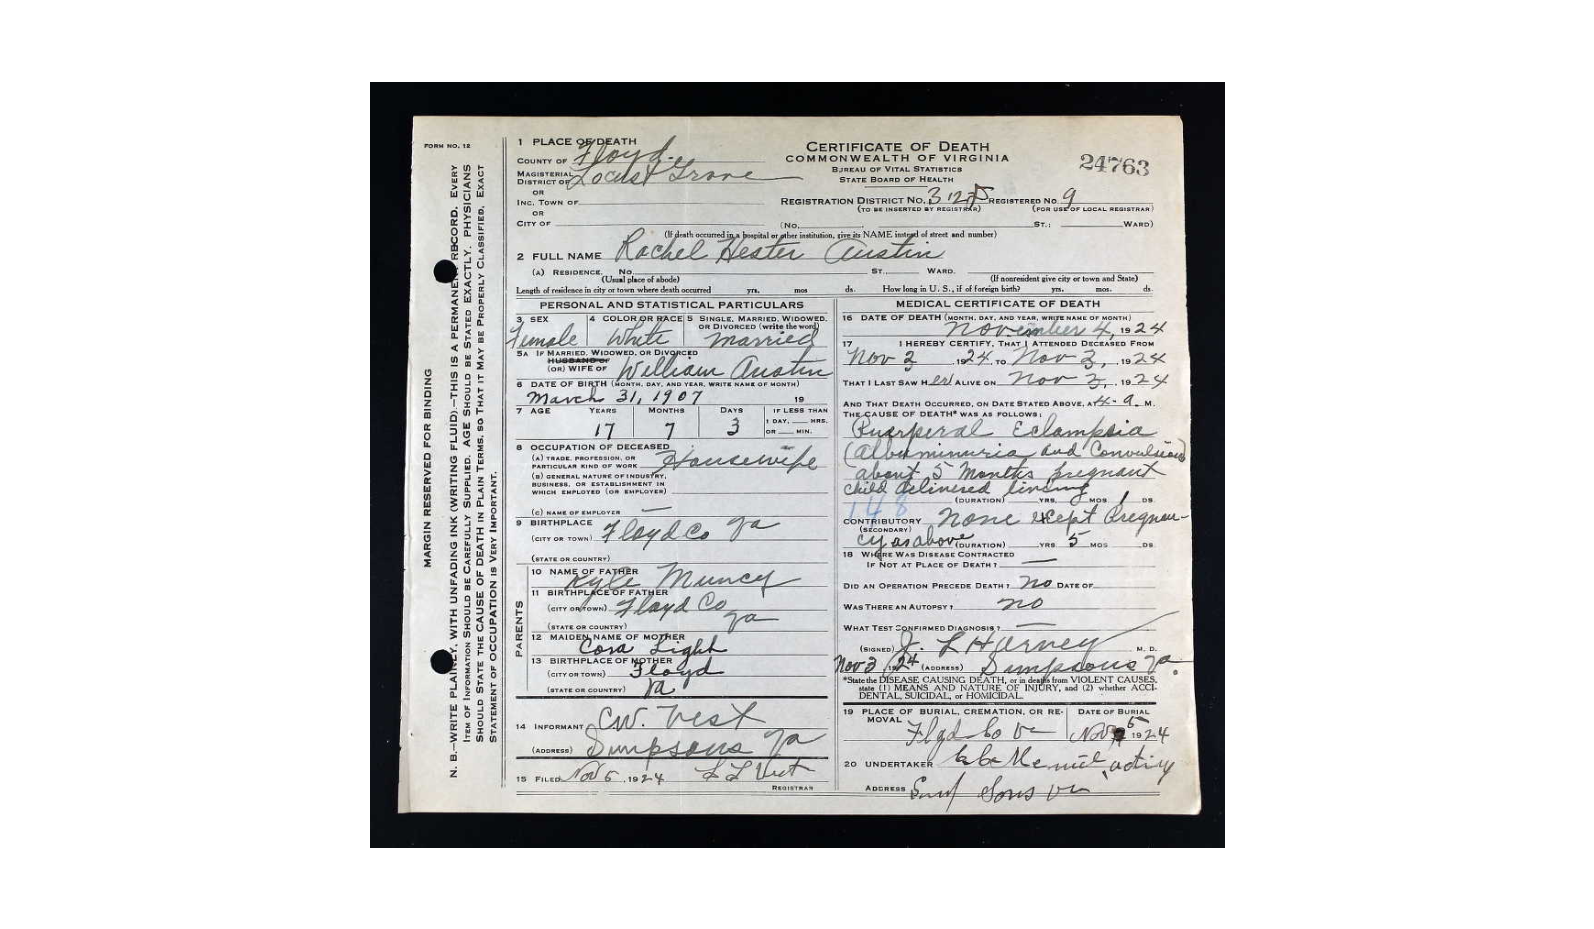 FORM NO. 12
MARGIN RESERVED FOR BINDING
N. B.—WRITE PLAINLY, WITH UNFADING INK (WRITING FLUID).—THIS IS A PERMANENT RECORD. EVERY
ITEM OF INFORMATION SHOULD BE CAREFULLY SUPPLIED. AGE SHOULD BE STATED EXACTLY. PHYSICIANS
SHOULD STATE THE CAUSE OF DEATH IN PLAIN TERMS, SO THAT IT MAY BE PROPERLY CLASSIFIED. EXACT
STATEMENT OF OCCUPATION IS VERY IMPORTANT.
1 PLACE OF DEATH
COUNTY OF Floyd
MAGISTERIAL DISTRICT OF Locust Grove
OR
INC. TOWN OF
OR
CITY OF
CERTIFICATE OF DEATH
COMMONWEALTH OF VIRGINIA
BUREAU OF VITAL STATISTICS
STATE BOARD OF HEALTH
24763
REGISTRATION DISTRICT No. REGISTERED No. 9
(TO BE INSERTED BY REGISTRAR) (FOR USE OF LOCAL REGISTRAR)
(No. ST.; WARD)
(If death occurred in a hospital or other institution, give its NAME instead of street and number)
2 FULL NAME Rachel Hester Austin
(A) RESIDENCE. No. ST. WARD.
(Usual place of abode) (If nonresident give city or town and State)
Length of residence in city or town where death occurred yrs. mos ds. How long in U. S., if of foreign birth? yrs. mos. ds.
PERSONAL AND STATISTICAL PARTICULARS
3 SEX 4 COLOR OR RACE 5 SINGLE, MARRIED, WIDOWED,
OR DIVORCED (write the word)
Female White Married
5A IF MARRIED, WIDOWED, OR DIVORCED
HUSBAND OF
(OR) WIFE OF William Austin
6 DATE OF BIRTH (MONTH, DAY, AND YEAR, WRITE NAME OF MONTH)
March 31, 1907 19
7 AGE YEARS MONTHS DAYS IF LESS THAN
1 DAY, HRS.
OR MIN.
17 7 3
8 OCCUPATION OF DECEASED
(A) TRADE, PROFESSION, OR
PARTICULAR KIND OF WORK Housewife
(B) GENERAL NATURE OF INDUSTRY,
BUSINESS, OR ESTABLISHMENT IN
WHICH EMPLOYED (OR EMPLOYER)
(C) NAME OF EMPLOYER —
9 BIRTHPLACE
(CITY OR TOWN) Floyd Co Va
(STATE OR COUNTRY)
PARENTS
10 NAME OF FATHER
Kyle Muncy
11 BIRTHPLACE OF FATHER
(CITY OR TOWN) Floyd Co
(STATE OR COUNTRY) Va
12 MAIDEN NAME OF MOTHER
Cora Light
13 BIRTHPLACE OF MOTHER
(CITY OR TOWN) Floyd
(STATE OR COUNTRY) Va
14 INFORMANT C.W. Vest
(ADDRESS) Simpsons Va
15 FILED Nov 5, 1924 Vest
REGISTRAR
MEDICAL CERTIFICATE OF DEATH
16 DATE OF DEATH (MONTH, DAY, AND YEAR, WRITE NAME OF MONTH)
November 4, 1924
17 I HEREBY CERTIFY, THAT I ATTENDED DECEASED FROM
Nov 2 1924, TO Nov 3, 1924
THAT I LAST SAW HER ALIVE ON Nov 3, 1924
AND THAT DEATH OCCURRED, ON DATE STATED ABOVE, AT 4-a. M.
THE CAUSE OF DEATH* WAS AS FOLLOWS:
Puerperal Eclampsia
(Albuminuria and Convulsions
about 5 Months pregnant
child delivered
(DURATION) YRS. MOS. 1 DS.
148
CONTRIBUTORY None except Pregnan-
(SECONDARY)
cy as above (DURATION) YRS 5 MOS DS.
18 WHERE WAS DISEASE CONTRACTED
IF NOT AT PLACE OF DEATH? —
DID AN OPERATION PRECEDE DEATH? no DATE OF
WAS THERE AN AUTOPSY? no
WHAT TEST CONFIRMED DIAGNOSIS? —
(SIGNED) J. L. Harvey M. D.
Nov 3, 1924 (ADDRESS) Simpsons Va.
*State the DISEASE CAUSING DEATH, or in deaths from VIOLENT CAUSES,
state (1) MEANS AND NATURE OF INJURY, and (2) whether ACCI-
DENTAL, SUICIDAL, or HOMICIDAL.
19 PLACE OF BURIAL, CREMATION, OR RE-
MOVAL DATE OF BURIAL
Floyd Co Va Nov 5 1924
20 UNDERTAKER acting
ADDRESS